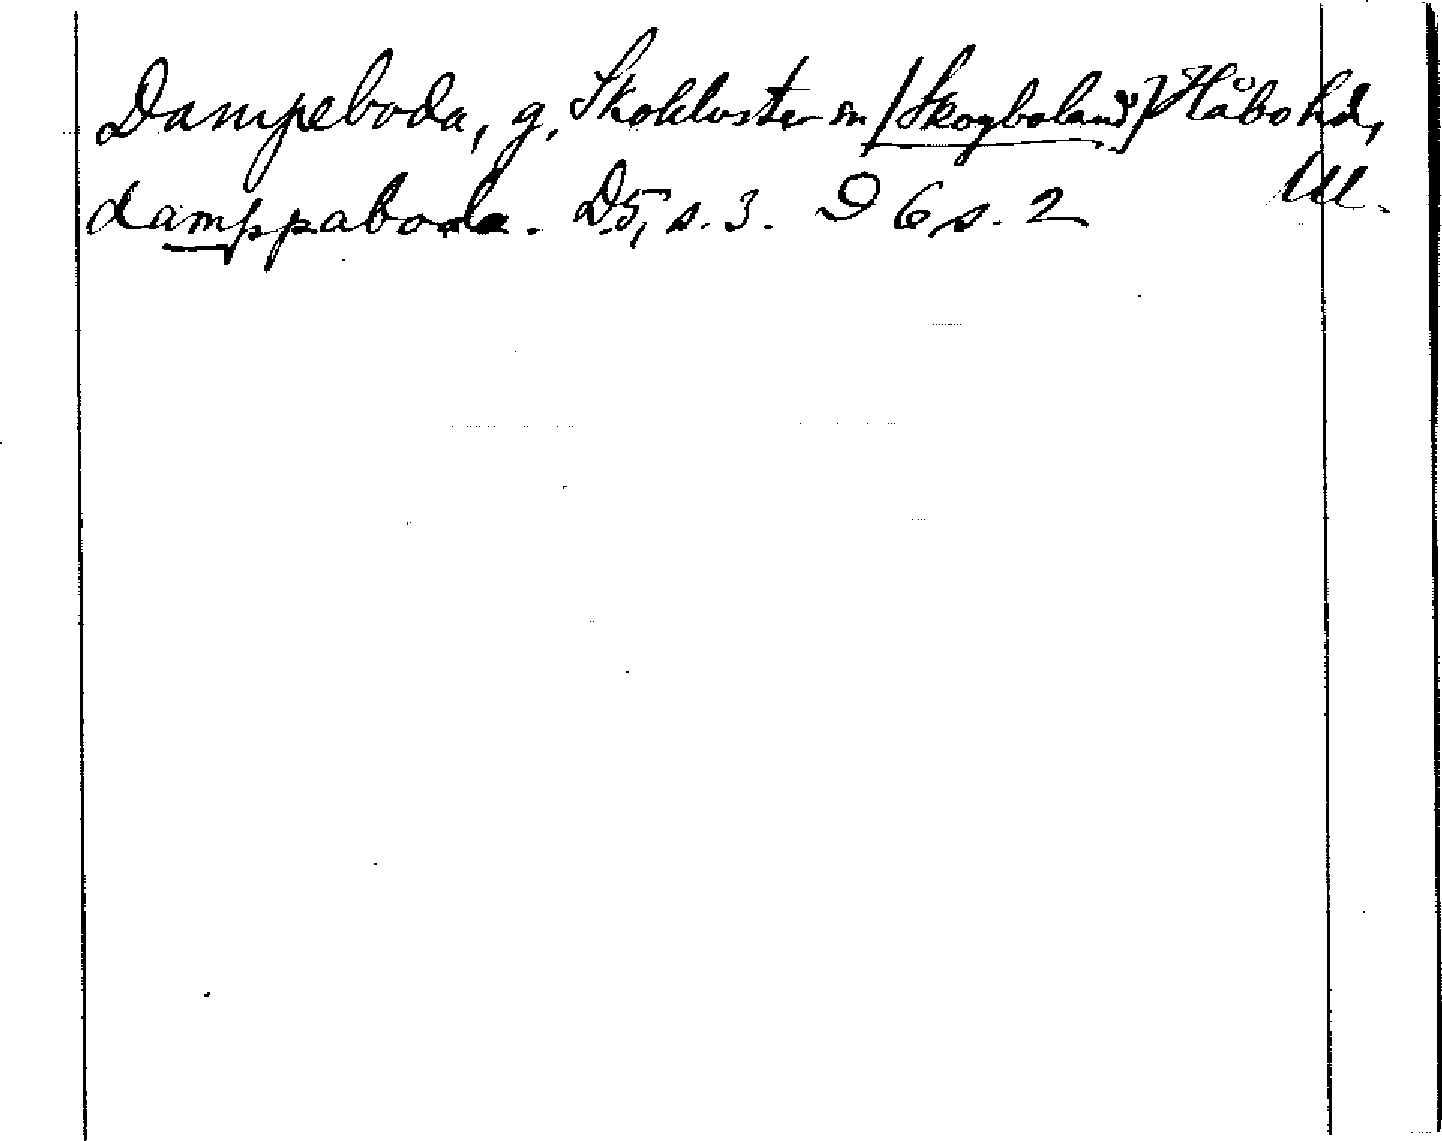 Dampeboda, g, Skokloster sn [Skogboland] Håbo hd,
damppaboda. D5, s. 3. D 6 s. 2 Ul.